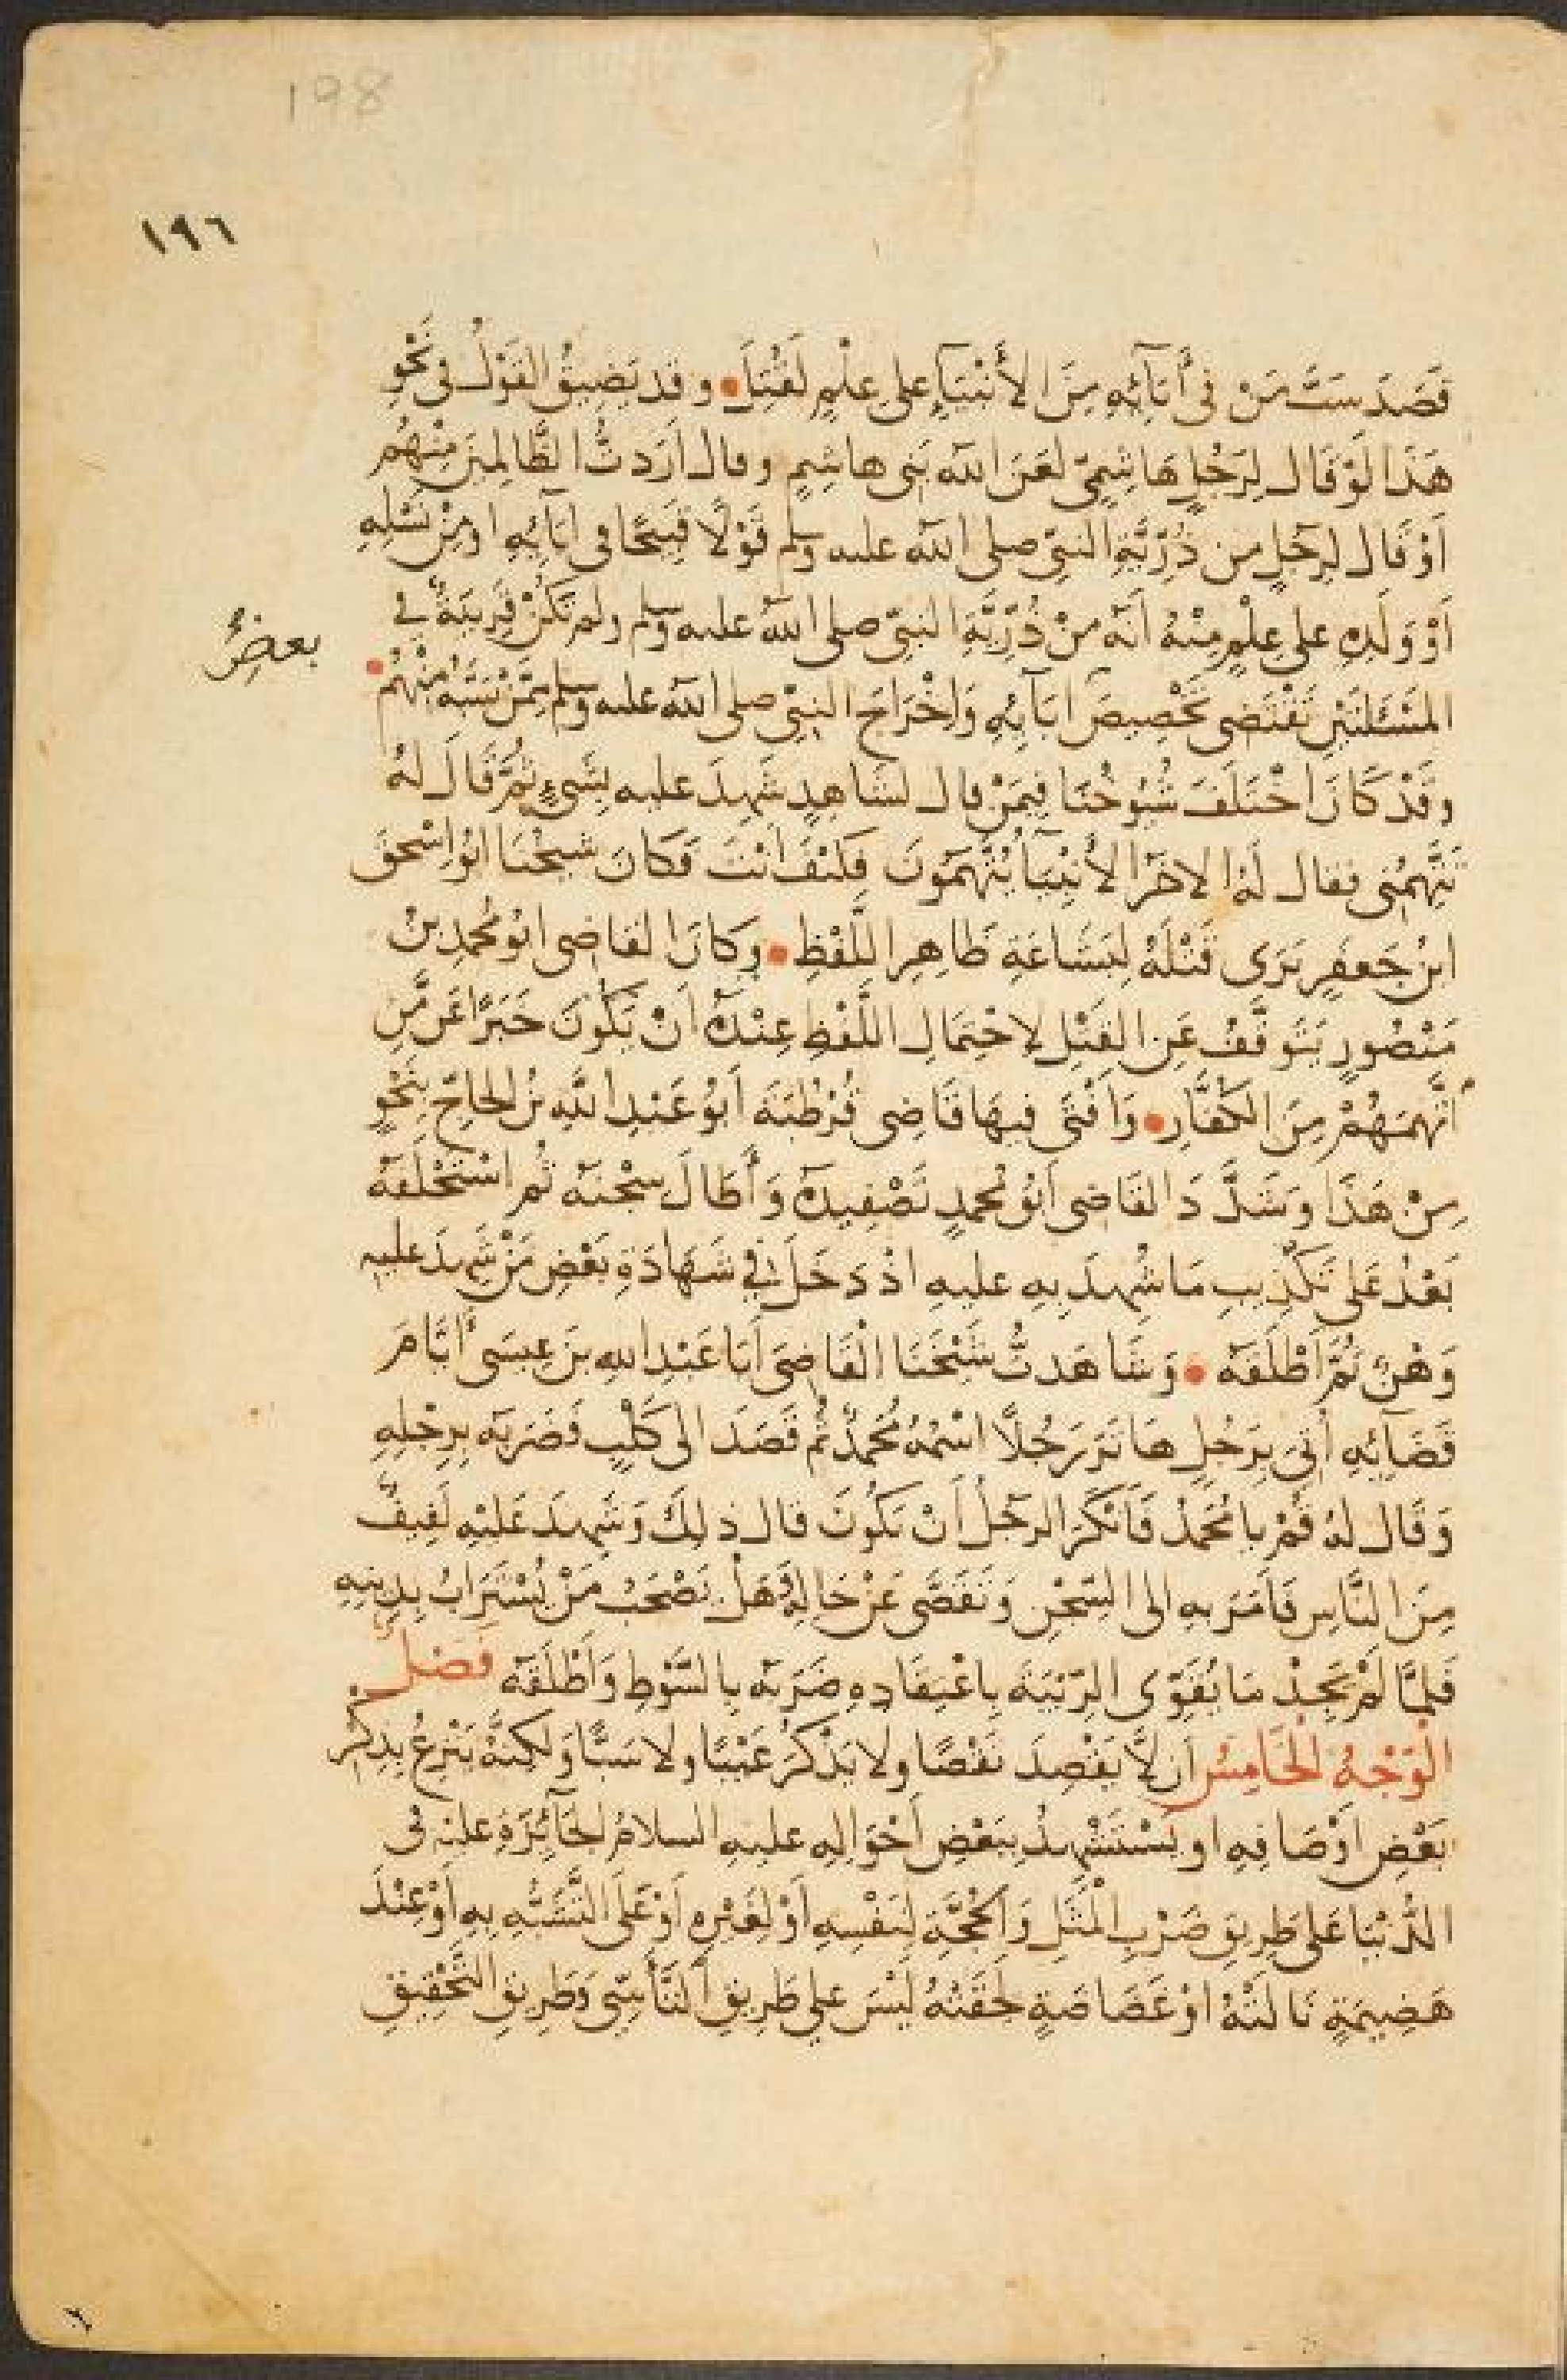 198
١٩٦
قَصَدَ سَبَّ مَنْ فى أَبَآئِهِ مِنَ الأَنْبِيَآءِ على عِلْمٍ لَقُتِلَ • وقد يَضِيقُ القَوْلُ فى نَحْوِ
هَذَا لَوْ قَالَ لِرَجُلٍ هَاشِمِىّ لعَنَ اللّه بَنِى هاشِمٍ وقال اَرَدتُّ الظَّالمِينَ مِنْهُم
اَوْ قَال لِرَجُلٍ من ذُرِّيَّةِ النبىّ صلى اللّه عليه وسلم قَوْلًا قَبِيحًا فى ابَآئِهِ او مِنْ نَسْلِهِ
اَوْ وَلَدِهِ على عِلْمٍ مِنْهُ اَنَّه مِنْ ذُرِّيَّةِ النبىّ صلى اللّه عليه وسلم ولم تَكُنْ قَرِينَةٌ فى
بعضِ
المَسْئَلَتَيْنِ تَقْتَضى تَخْصِيصَ ابَآئِهِ وَاِخْرَاجَ النبىّ صلى اللّه عليه وسلم مِمَّنْ سَبَّهُ مِنْهُم •
وَقَدْ كَانَ اخْتَلَفَ شُيُوخُنَا فِيمَنْ قال لشَاهِدٍ شَهِدَ عليه بِشَىءٍ ثُمَّ قَالَ لهُ
تَتَّهِمُنِى فقال لَهُ الاخَرُ الأَنْبِيَآُ يُتَّهَمُونَ فَكَيْفَ انْتَ فَكَانَ شيخُنَا ابُو اِسْحقَ
ابنُ جَعفَرٍ يَرَى قَتْلَهُ لِبَشَاعَةِ ظَاهِرِ اللَّفْظِ • وَكَانَ القاضى ابُو مُحمدِ بنُ
مَنْصُورٍ يَتَوَقَّفُ عَنِ القَتْلِ لاحْتِمَالِ اللَّفْظِ عِنْدَهُ اَنْ يَكُونَ خَبَرًا عَمَّنِ
اتَّهَمَهُمْ مِنَ الكُفَّارِ • وَاَفْتَى فِيهَا قَاضِى قُرْطُبَةَ اَبُو عَبْدِ اللّهِ بنُ الحَاجّ بِنَحْوٍ
مِنْ هَذَا وَشَدَّدَ القَاضى اَبُو مُحمدٍ تَصْفِيدَهُ وَأَطَالَ سِجْنَهُ ثُم اسْتَحْلَفَهُ
بَعْدُ عَلى تَكْذِيبِ مَا شُهِدَ بِهِ عليهِ اذْ دَخَلَ فى شَهَادَةِ بَعْضِ مَنْ شَهِدَ عليهِ
وَهْنٌ ثُمَّ اَطْلَقَهُ • وَشَاهَدتُّ شَيْخَنَا الْقَاضِىَ اَبَا عَبْدِ اللهِ بنَ عِيسَى أيَّامَ
قَضَآئِهِ اُتِىَ بِرَجُلٍ هَاتَرَ رَجُلًا اسْمُهُ مُحَمدٌ ثُم قَصَدَ الى كَلْبٍ فَضَرَبَه بِرِجْلِهِ
وَقَال لهُ قُمْ يا مُحَمدُ فَاَنْكَرَ الرجُلُ اَنْ يَكُونَ قال ذلِكَ وَشَهِدَ عَلَيْهِ لَفِيفٌ
مِنَ النَّاسِ فَاَمَرَ بِهِ الى السِّجْنِ وَتَقَصَّى عَنْ حَالِهِ وَهَلْ يَصْحَبُ مَنْ يُسْتَرَابُ بِدِينِهِ
فَلمَّا لَمْ يَجِدْ مَا يُقَوِّى الرِّيبَةَ بِاعْتِقَادِهِ ضَرَبَهُ بِالسَّوْطِ وَاَطْلَقَهُ فَصْل
الْوَجْهُ الْخَامِسُ اَن لاَّ يَقْصِدَ نَقْصًا ولا يَذْكُرَ عَيْبًا ولا سَبًّا وَلكِنَّهُ يَنْزِعُ بِذِكْرِ
بَعْضِ اَوْصَافِهِ او يَسْتَشْهِدُ بِبَعْضِ اَحْوَالِهِ عليهِ السلامُ الجَآئِزَةِ عليْهِ فى
الدُّنْيَا عَلى طَرِيقِ ضَرْبِ الْمَثَلِ وَالحُجَّةِ لِنَفْسِهِ اَوْ لِغَيْرِهِ اَوْ عَلَى التَّشَبُّهِ بِهِ اَوْ عِنْدَ
هَضِيمَةٍ نَالَتْهُ اوْ غَضَاضَةٍ لَحِقَتْهُ لَيْسَ على طَرِيقِ التَّأَسِّى وَطَرِيقِ التَّحْقِيقِ